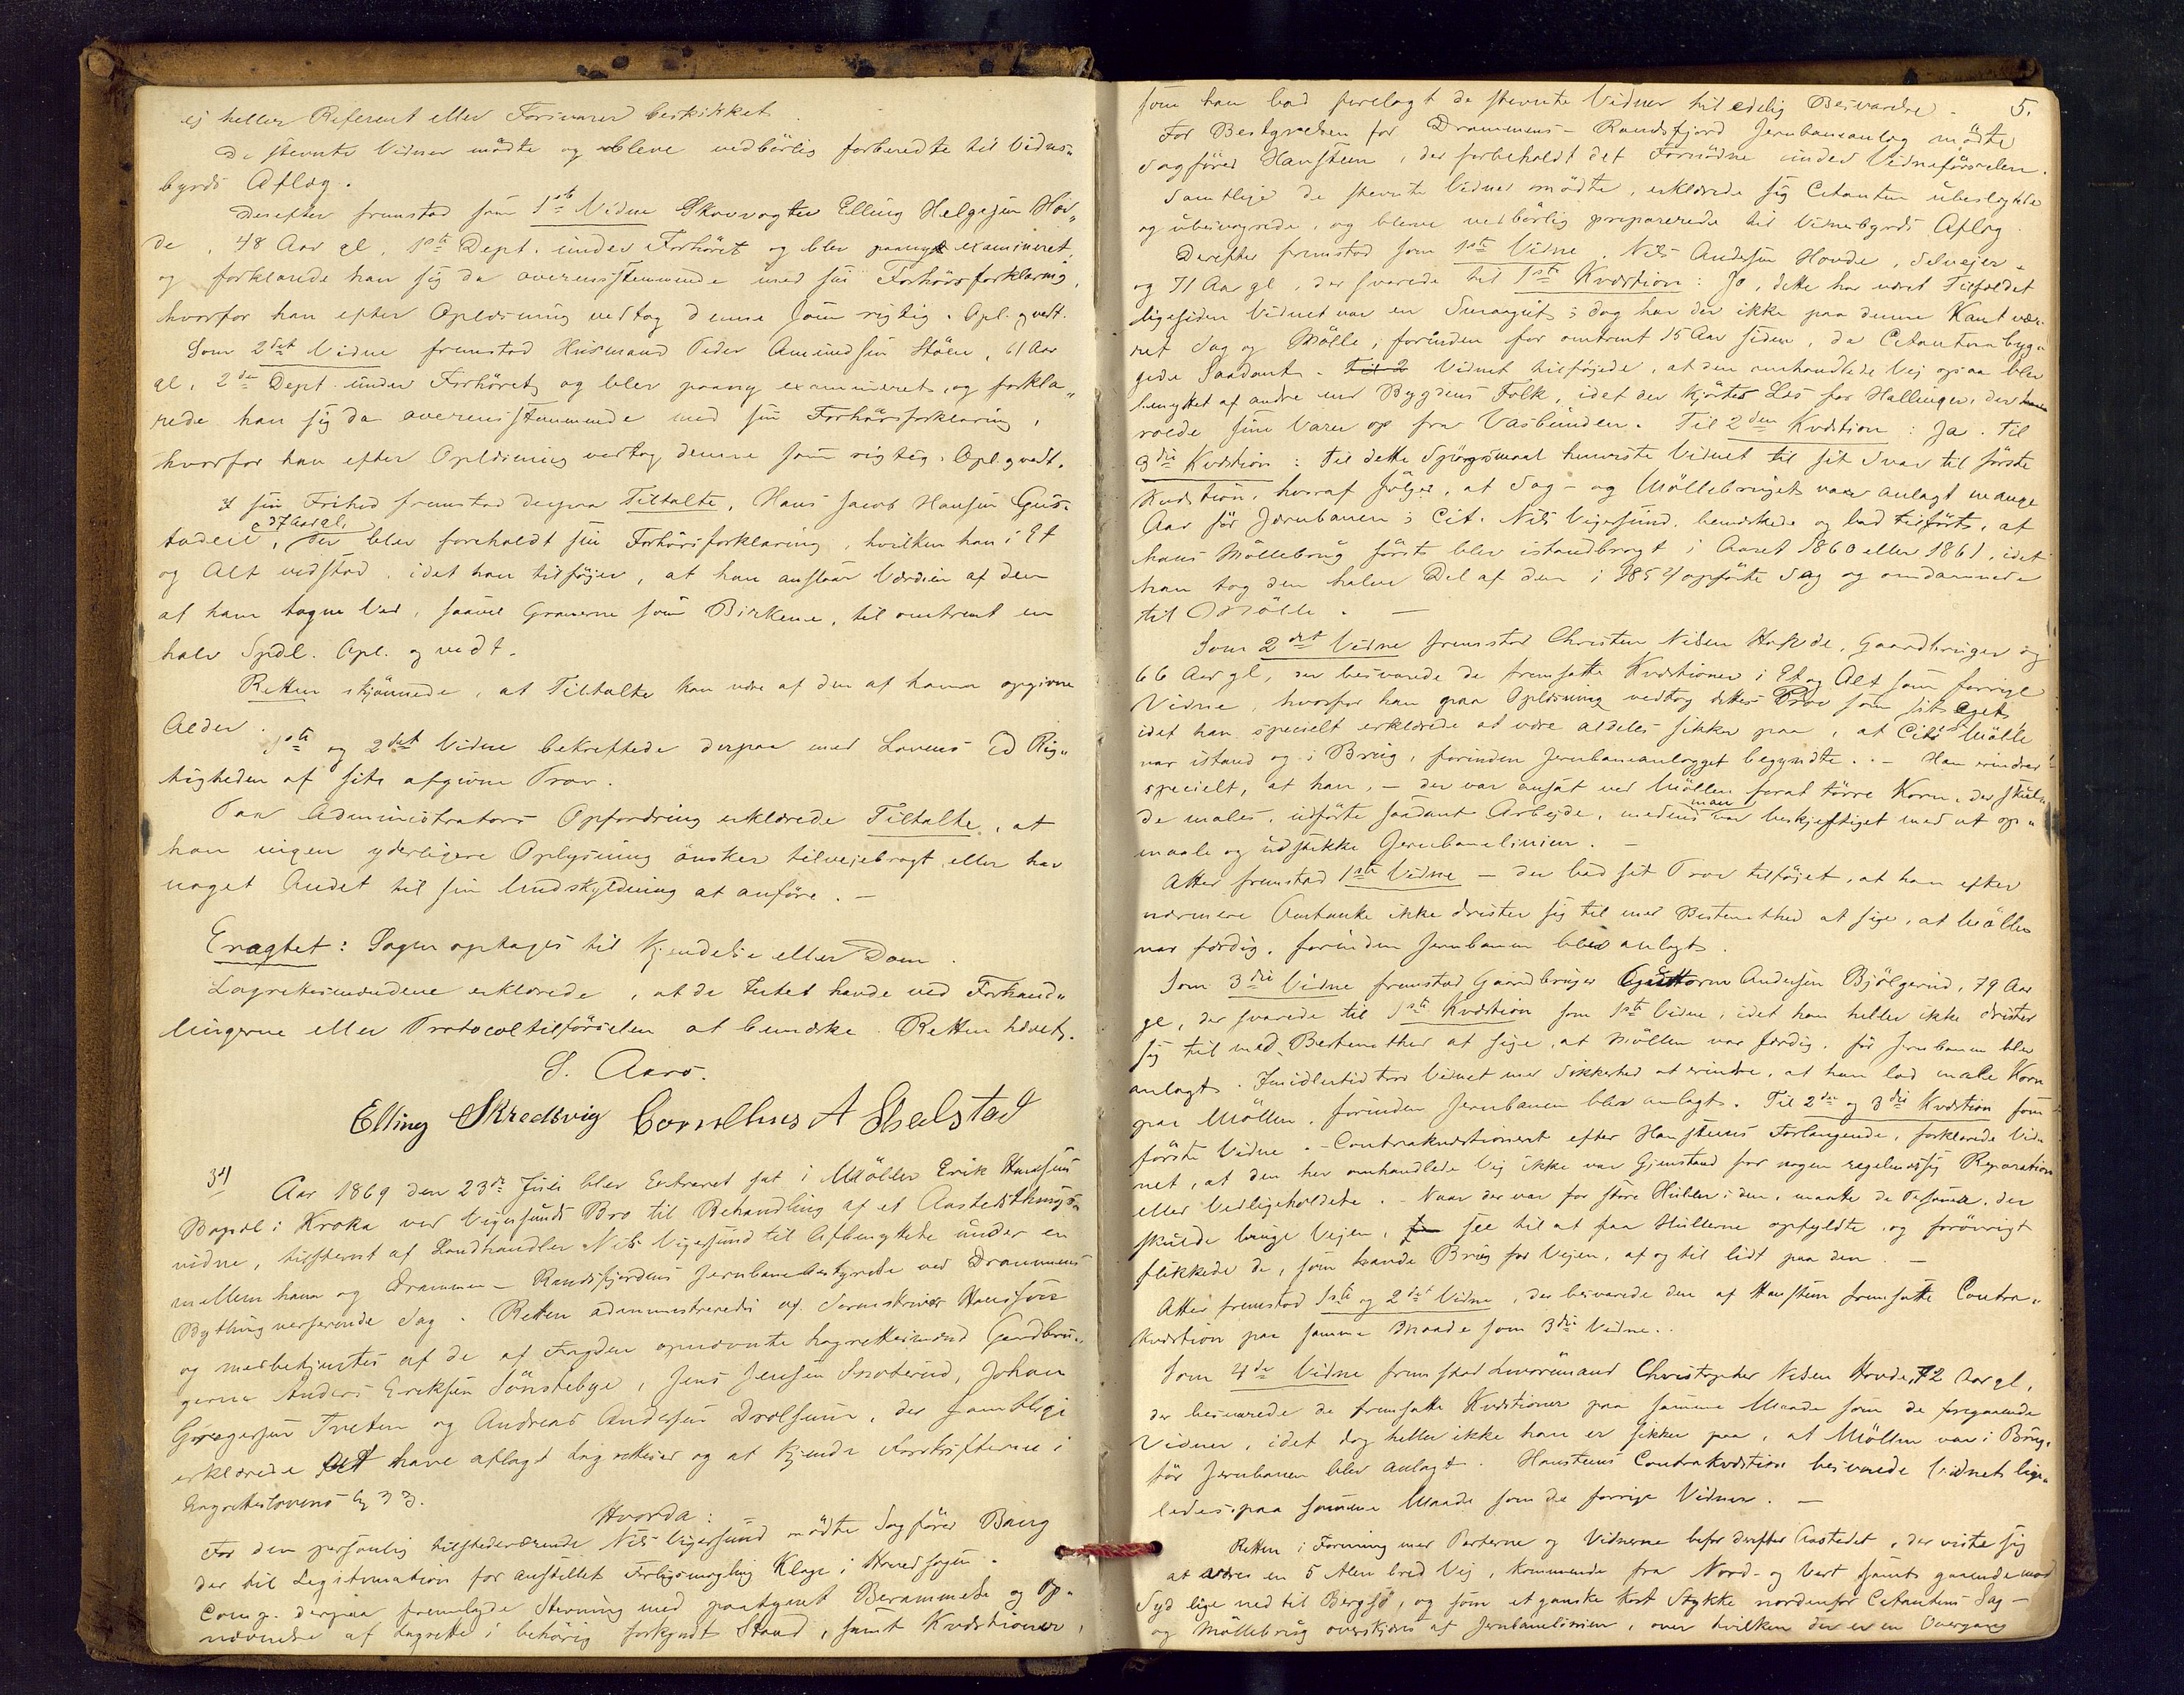 ej heller Referent eller Forsvarer beskikket
De stevnte Vidner mødte og bleve vedbørlig forberedte til Vidnes„
byrds Aflæg.
Derefter fremstod som 1ste Vidne Skovvogter Elling Helgesen Hov„
de, 48 Aar gl, 1ste Dept. under Forhøret og blev paany examineret,
og forklarede han sig da overensstemmende med sin Forhørsforklaring,
hvorfor han efter Oplæsning vedtog denne som rigtig. Opl. g vedt.
Som 2det Vidne fremstod Husmand Peder Amundsen Støen, 61 Aar
gl, 2den Dept. under Forhøret, og blev paany examineret, og forkla„
rede han sig da overensstemmende med sin Forhørsforklaring,
hvorfor han efter Oplæsning vedtog denne som rigtig. Opl. g vedt.
I sin Frihed fremstod derpaa Tiltalte, Hans Jacob Hansen Gus„
37 Aar gl,
tadeie, der blev foreholdt sin Forhørsforklaring, hvilken han i Et
og Alt vedstod, idet han tilføjer, at han anslaar Værdien af den
af ham tagne Ved, saavel Granerne som Birkene, til omtrent en
halv Spdl. Opl. og vedt.
Retten skjønnede, at Tiltalte kan være af den af ham opgivne
Alder.
1ste og 2det Vidne bekræftede derpaa med Lovens Ed Rig„
tigheden af sit afgivne Prov.
Paa Administrators Opfordring erklærede Tiltalte, at
han ingen yderligere Oplysning ønsker tilvejebragt eller har
noget Andet til sin Undskyldning at anføre. –
Eragtet: Sagen optages til Kjendelse eller Dom.
Lagrettesmændene erklærede, at de Intet havde ved Forhand„
lingerne eller Protocoltilførselen at bemærke. Retten hævet.
S. Aars.
Elling Skredsvig Cornelius A
3) Aar 1869 den 23de Juli blev Extraret sat i Møller Erik Hansens
Bopæl i Kroka ved Vigersunds Bro til Behandling af et Aastedsthings„
vidne, tilstevnt af Landhandler Nils Vigersund til Afbenyttelse under en
mellem ham og Drammen – Randsfjordens Jernbanebestyrelse ved Drammens
Bything verserende Sag. Retten administreredes af Sorenskriver
og medbetjentes af de af Fogden opnævnte Lagrettesmænd Gaardbru„
gerne Anders Eriksen Sønstebye, Jens Jensen Snoterud, Johan
Gregersen Tveten og Andreas Andersen Drolsum, der samtlige
erklærede at have aflagt Lagretteseed og at kjende Forskrifterne i
Lagretteslovens § 33.
Hvorda:
For den personlig tilstedeværende Nils Vigersund mødte Sagfører Bang
der til Legitimation for anstillet Forligsmægling Klage i Hovedsagen.
Comp. derpaa fremlagde Stevning med paategnet Berammelse og Op„
nævnelse af Lagrette i behørig forkyndt Stand, samt Kvæstioner,
5.
som han bad forelagt de stevnte Vidner til edelig Besvarelse.
For Bestyrelsen for Drammens – Randsfjord Jernbaneanlæg mødte
Sagfører Hansteen, der forbeholdt det Fornødne under Vidneførselen.
Samtlige de stevnte Vidner mødte, erklærede sig Citanten ubeslægtede
og ubesvogrede, og bleve vedbørlig preparerede til Vidnesbyrds Aflæg.
Derefter fremstod som 1ste Vidne, Nils Andersen Hovde, Selvejer
og 71 Aar gl, der svarede til 1ste Kvæstion: Ja, dette har været Tilfældet
ligesiden Vidnet var en Smaagut; dog har der ikke paa denne Kant væ„
ret Sag og Mølle, forinden for omtrent 15 Aar siden, da Citanten byg„
gede Saadant. Til 2 Vidnet tilføjede, at den omhandlede Vej ogsaa blev
benyttet af andre end Bygdens Folk, idet der kjørtes Læs for Hallinger, der
roede sine Varer op fra Vasbunden. Til 2den Kvæstion: Ja. Til
3die Kvæstion: Til dette Spørgsmaal henviste Vidnet til sit Svar til første
Kvæstion, hvoraf følger, at Sag- og Møllebruget var anlagt mange
Aar før Jernbanen; Cit. Nils Vigersund bemærkede og bad tilført, at
hans Møllebrug først blev istandbragt i Aaret 1860 eller 1861, idet
han tog den halve Del af den i 1854 opførte Sag og omdannede
til Mølle. –
Som 2det Vidne fremstod Christen Nilsen Hovde, Gaardbruger og
66 Aar gl, der besvarede de fremsatte Kvæstioner i Et og Alt som forrige
Vidne, hvorfor han paa Oplæsning vedtog dettes Prov som sit eget,
idet han specielt erklærede at være aldeles sikker paa, at Cits Mølle
var istand og i Brug, forinden Jernbaneanlægget begyndte. – Han erindrer
specielt, at han, – der var ansat ved Møllen forat tørre Korn, der skul„
de males, udførte saadant Arbejde, medens man var beskjeftiget med at op„
maale og udstikke Jernbanelinien. –
Atter fremstod 1ste Vidne – der bad sit Prov tilføjet, at han efter
nærmere Omtanke ikke drister sig til med Bestemthed at sige, at Møllen
var færdig, forinden Jernbanen blev anlagt.
Som 3die Vidne fremstod Gaardbruger Guttorm Andersen Bjølgerud, 79 Aar
gl, der svarede til 1ste Kvæstion som 1ste Vidne, idet han heller ikke drister
sig til med Bestemthed at sige, at Møllen var færdig, før Jernbanen blev
anlagt. Imidlertid tror Vidnet med Sikkerhed at erindre, at han lod male Korn
paa Møllen, forinden Jernbanen blev anlagt. Til 2den og 3die Kvæstion som
første Vidne. – Contrakvæstioneret efter Hansteens Forlangende, forklarede Vid„
net, at den her omhandlede Vej ikke var Gjenstand for nogen regelmæssig Reparation
eller Vedligeholdelse. – Naar der var for store Huller i den, maatte de Personer, der
skulde bruge Vejen, see til at faa Hullerne opfyldte og forøvrigt
flikkede de, som havde Brug for Vejen, af og til lidt paa den. –
Atter fremstod 1ste og 2det Vidne, der besvarede den af Hansteen fremsatte Contra„
kvæstion paa samme Maade som 3die Vidne.
Som 4de Vidne fremstod Christopher Nilsen Hovde, 72 Aar gl,
der besvarede de fremsatte Kvæstioner paa samme Maade som de foregaaende
Vidner, idet dog heller ikke han er sikker paa, at Møllen var i Brug,
før Jernbanen blev anlagt. Hansteens Contrakvæstion besvarede Vidnet lige„
ledes paa samme Maade som de forrige Vidner. –
Retten i Forening med Parterne og Vidnerne befor derefter Aastedet, der viste sig
at være en 5 Alen bred Vej, kommende fra Nord- og Vest samt gaaende mod
Syd lige ned til Bergsø, og som et ganske kort Stykke nordenfor Citantens Sag –
og Møllebrug overskjæres af Jernbanelinien, over hvilken der er en Overgang